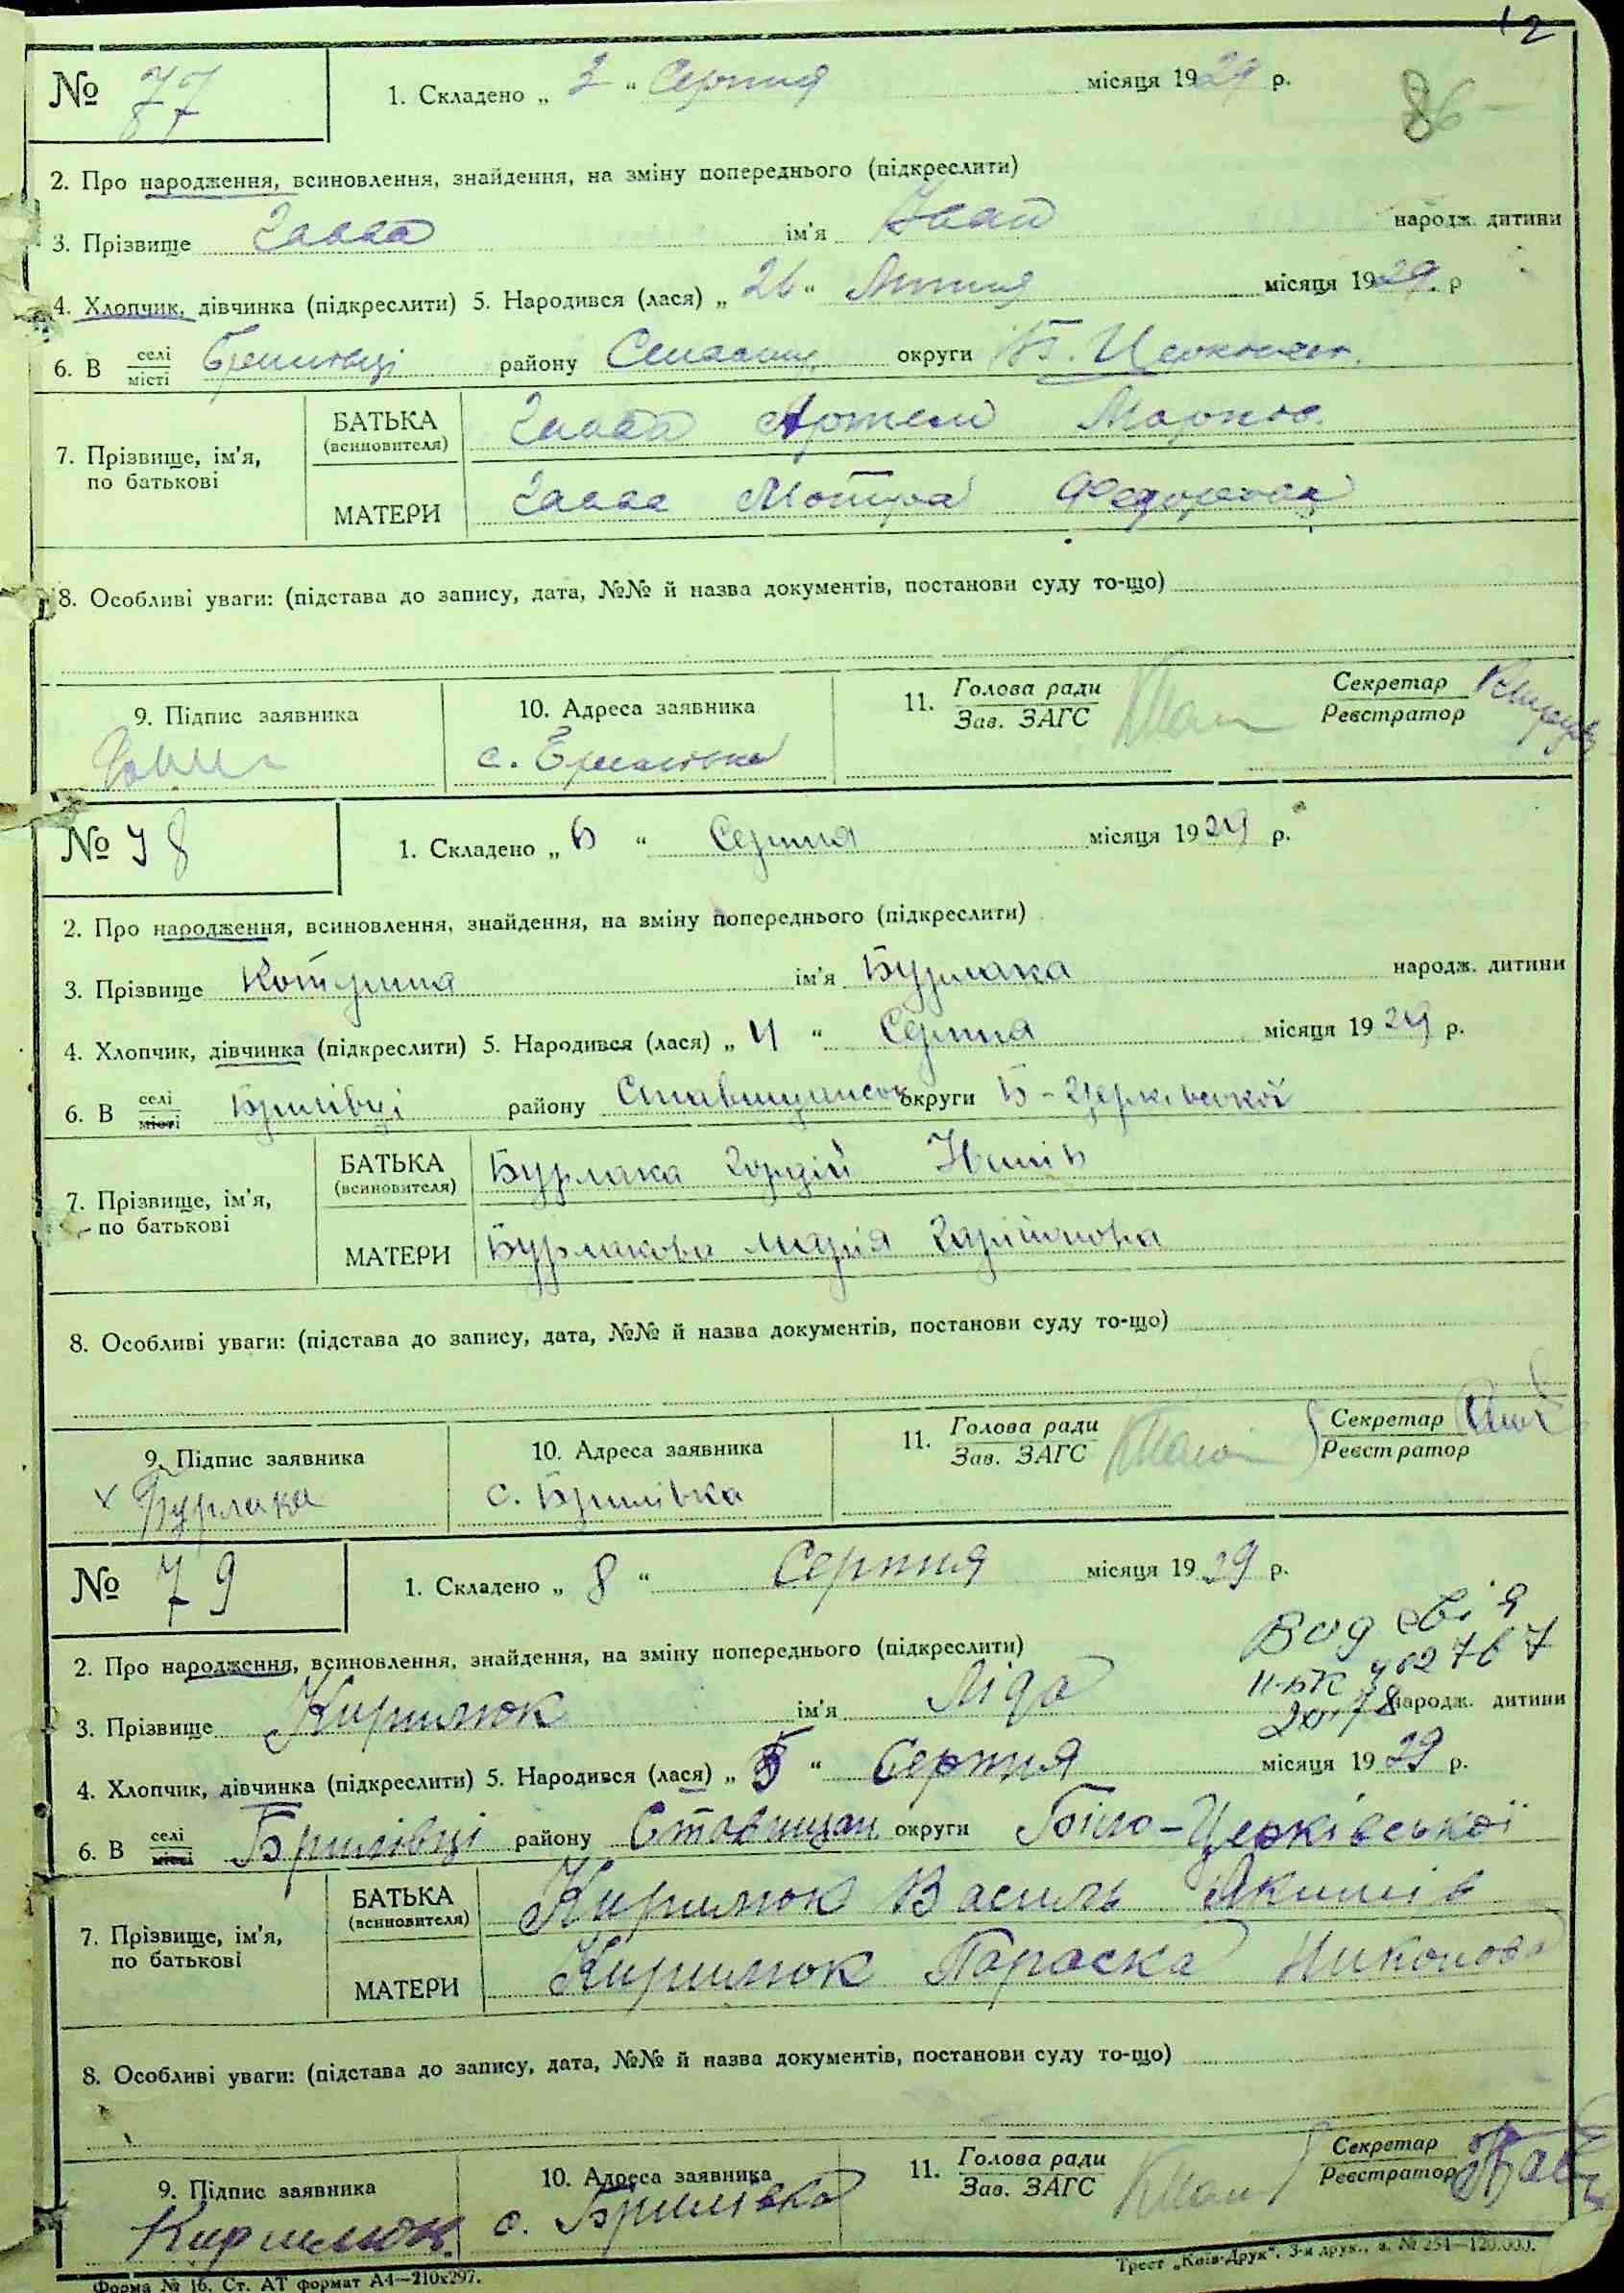 12
№ 77
1. Складено „ 3 “ Серпня місяця 1929 р.
86
2. Про народження, всиновлення, знайдення, на зміну попереднього (підкреслити)
3. Прізвище ім'я Іван народж. дитини
4. Хлопчик, дівчинка (підкреслити) 5. Народився (лася) „ 26 “ Липня місяця 1929 р
6. В селі місті району округи Б. Церковск.
7. Прізвище, ім'я, по батькові
БАТЬКА (всиновителя) Артем Марков.
МАТЕРИ Мотря Федоровна
8. Особливі уваги: (підстава до запису, дата, №№ й назва документів, постанови суду то-що)
9. Підпис заявника
10. Адреса заявника
11. Голова ради Зав. ЗАГС
Секретар Реєстратор
с.
№ 78
1. Складено „ 6 “ Серпня місяця 1929 р.
2. Про народження, всиновлення, знайдення, на зміну попереднього (підкреслити)
3. Прізвище Котерина ім'я Бурлака народж. дитини
4. Хлопчик, дівчинка (підкреслити) 5. Народився (лася) „ 4 “ Серпня місяця 1929 р.
6. В селі місті Брилівці району Ставищансок округи Б-Церківської
7. Прізвище, ім'я, по батькові
БАТЬКА (всиновителя) Бурлака Гордій
МАТЕРИ Бурлакова Марія
8. Особливі уваги: (підстава до запису, дата, №№ й назва документів, постанови суду то-що)
9. Підпис заявника
10. Адреса заявника
11. Голова ради Зав. ЗАГС
Секретар Реєстратор
х Бурлака
с. Брилівка
№ 79
1. Складено „ 8 “ Серпня місяця 1929 р.
2. Про народження, всиновлення, знайдення, на зміну попереднього (підкреслити)
3. Прізвище Кирилюк ім'я Ліда народж. дитини
4. Хлопчик, дівчинка (підкреслити) 5. Народився (лася) „ 5 “ Серпня місяця 1929 р.
6. В селі місті Брилівці району Ставищан. округи Біло-Церківської
7. Прізвище, ім'я, по батькові
БАТЬКА (всиновителя) Кирилюк Василь Якимів
МАТЕРИ Кирилюк Параска Никонова
8. Особливі уваги: (підстава до запису, дата, №№ й назва документів, постанови суду то-що)
9. Підпис заявника
10. Адреса заявника
11. Голова ради Зав. ЗАГС
Секретар Реєстратор
Кирилюк.
с. Брилівка
Форма № 16. Ст. АТ формат А4—210х297.
Трест „Київ-Друк“. 3-я друк., з. № 254—120.000.